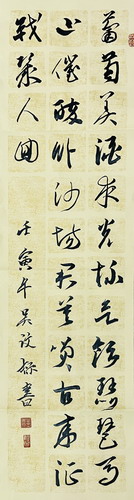 葡萄美酒夜光杯欲飲琵琶馬
上催醉卧沙場君莫笑古來征
戰幾人回
壬寅年吴書